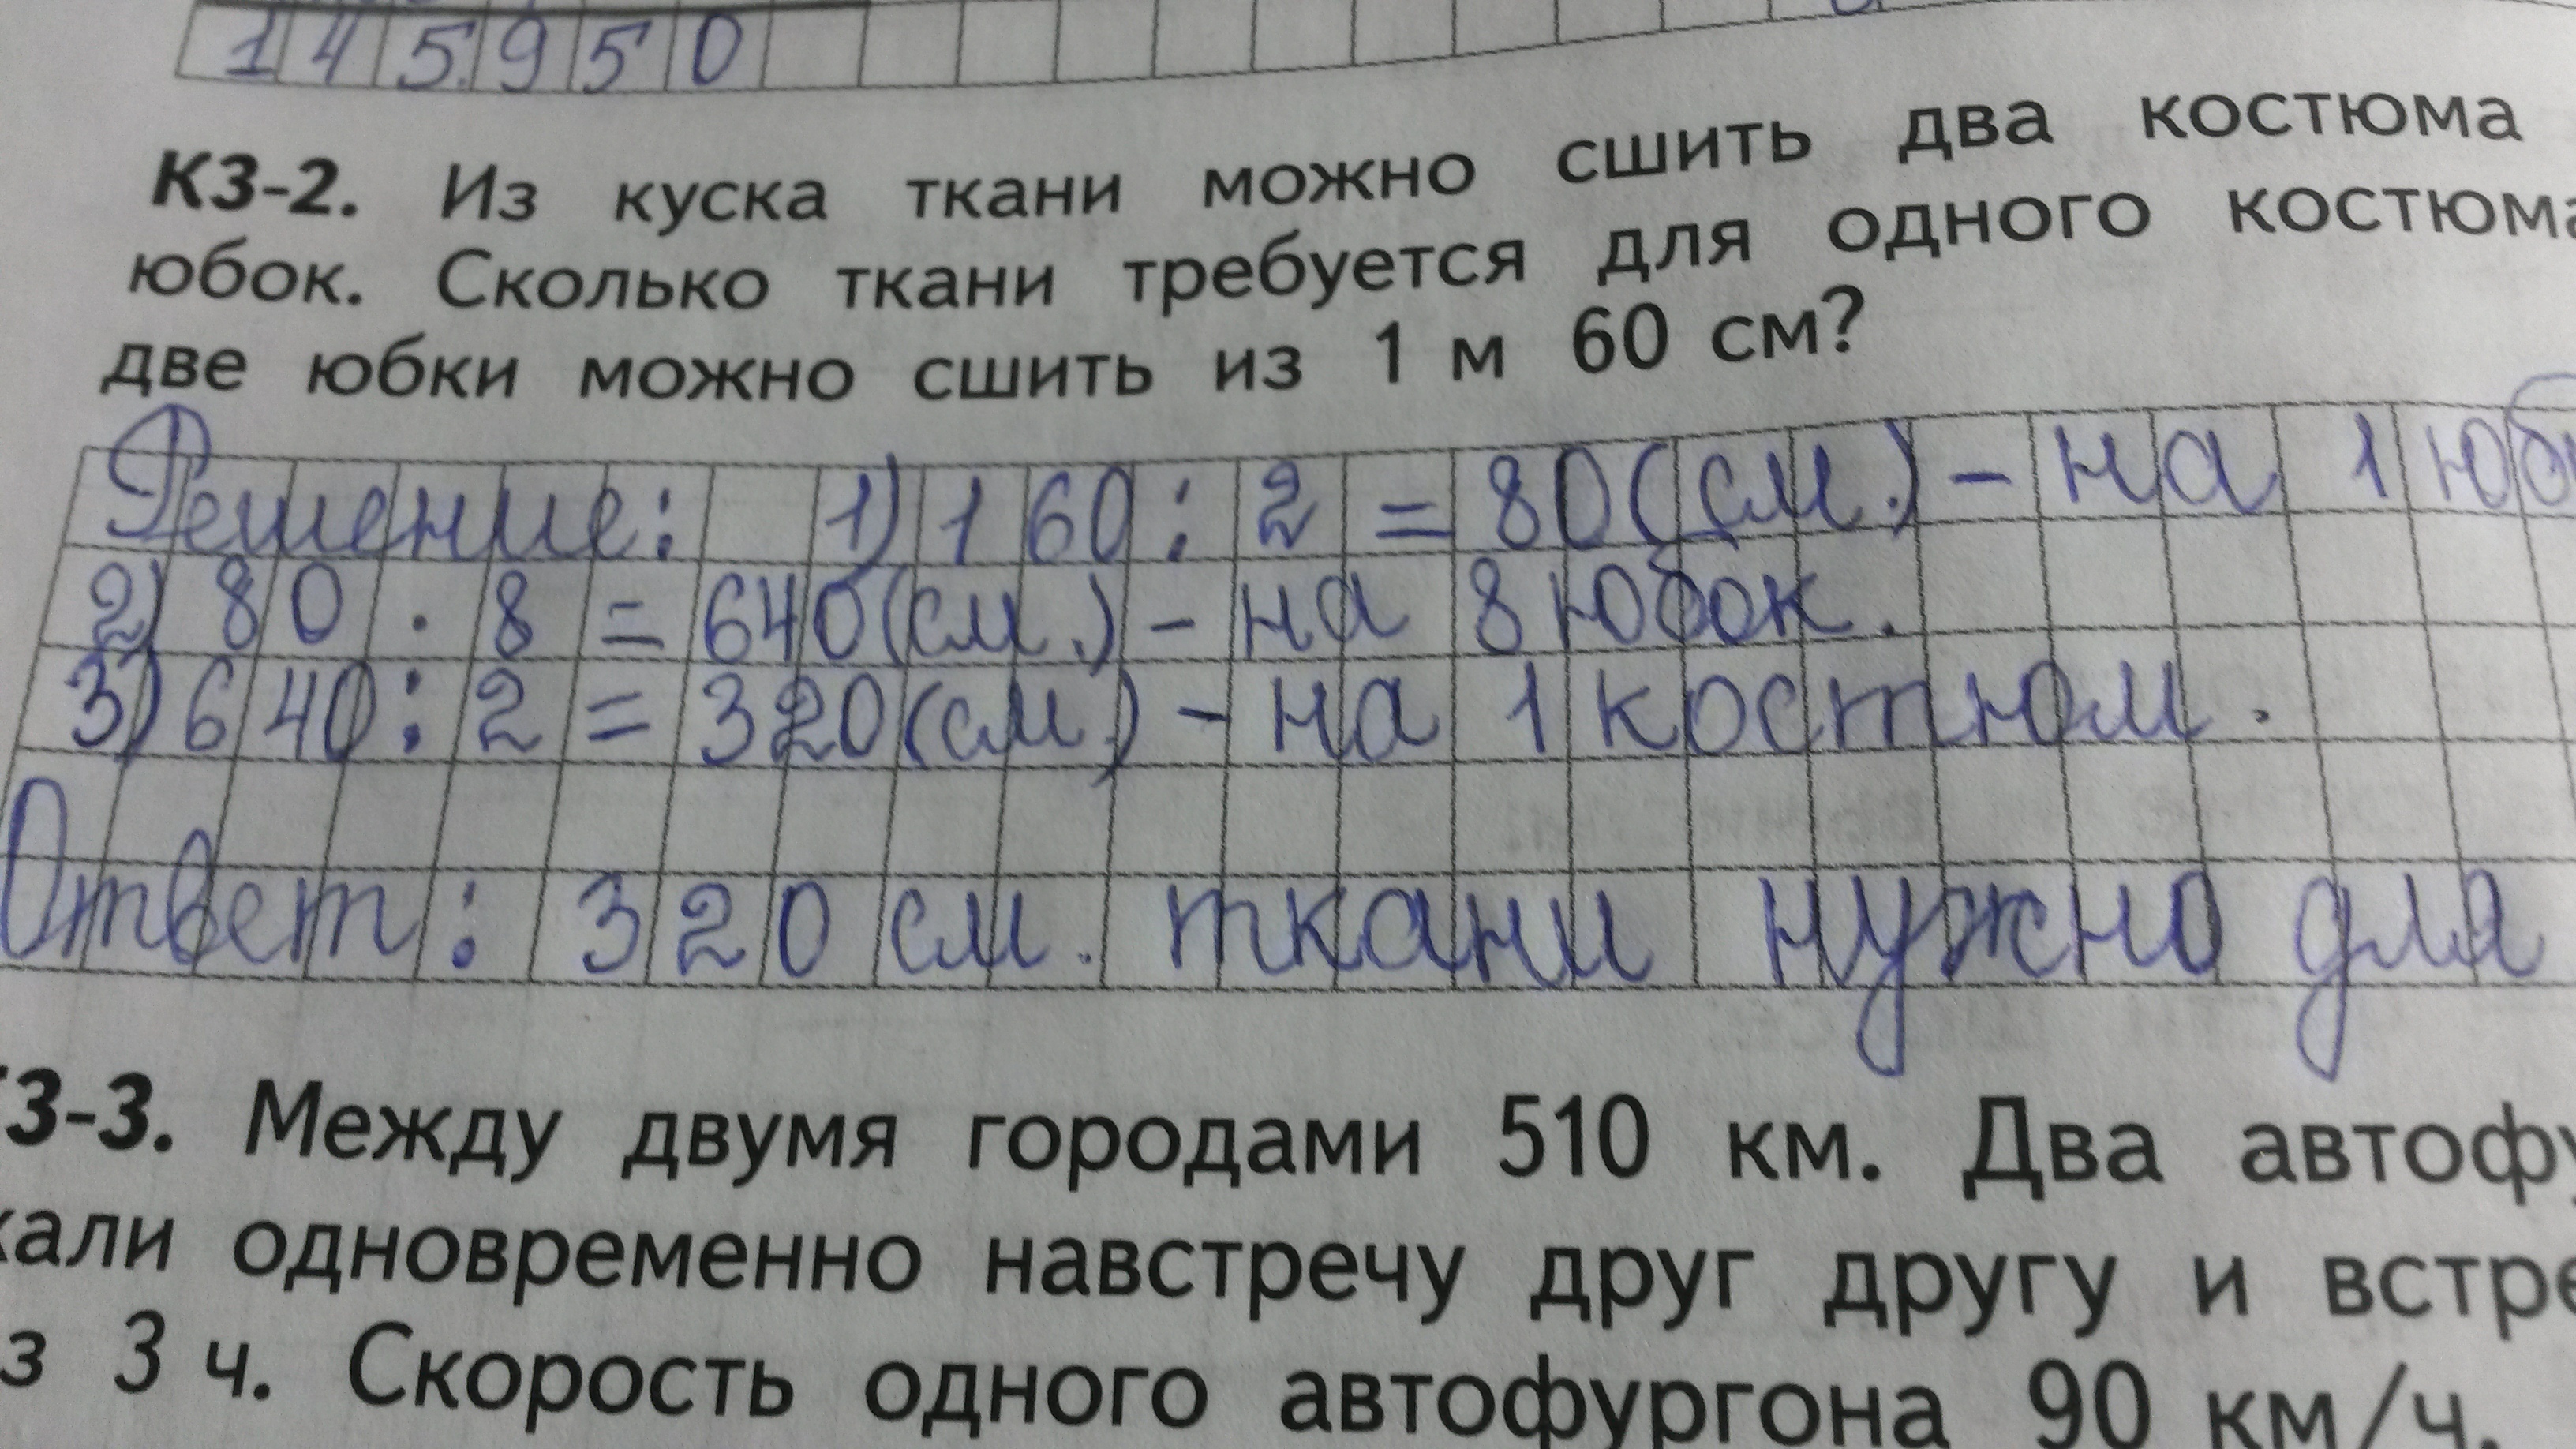 145950
КЗ-2. Из куска ткани можно сшить два костюма
юбок. Сколько ткани требуется для одного костюма
две юбки можно сшить из 1 м 60 см?
Решение: 1) 160 : 2 = 80 (см.) - на 1 юб
2) 80 · 8 = 640 (см.) - на 8 юбок.
3) 640 : 2 = 320 (см.) - на 1 костюм.
Ответ: 320 см. ткани нужно для
З-3. Между двумя городами 510 км. Два автофу
хали одновременно навстречу друг другу и встре
з 3 ч. Скорость одного автофургона 90 км/ч.